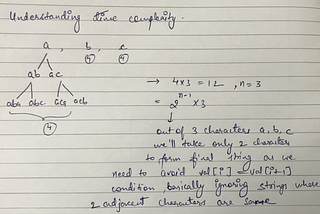 Understanding time complexity.
a , b , c
④ ④
ab ac
→ 4x3 = 12 , n=3
aba abc aca acb
= 2^(n-1) x3
④
↓
out of 3 characters a, b, c
we'll take only 2 characters
to form final string as we
need to avoid val[i] = val[i+1]
condition, basically ignoring strings where
2 adjacent characters are same